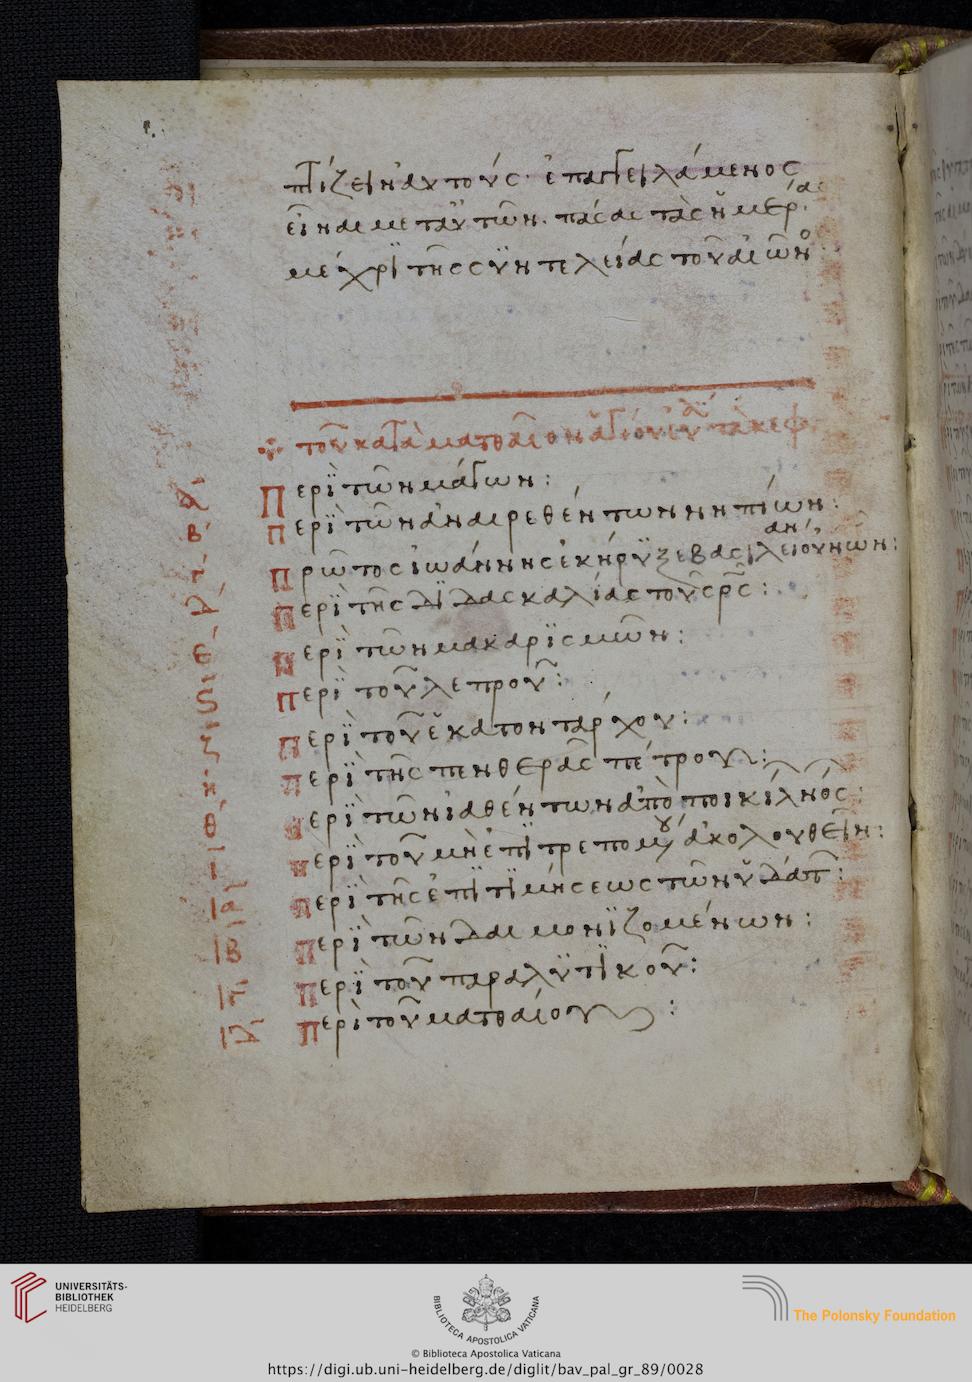 πτίζειν αὐτούς· ἐπαγγειλάμενος
εἶναι μετ αὐτῶν· πάσαι τὰς ἡμέρας
μέχρϊ τῆς συντελείας τοῦ αἰῶνο
τοῦ κατὰ ματθαῖον τὰ κεφ
α Περὶ τῶν μάγων:
β Περὶ τῶν ἀναιρεθέντων νηπίων:
γ Πρῶτος ἰωάννης ἐκήρϋξε βασιλείαν οὐνῶν:
δ Περὶ τῆς δϊδασκαλίας τοῦ σρς:
ε Περὶ τῶν μακαρϊσμῶν:
ς Περὶ τοῦ λεπροῦ:
ζ Περὶ τοῦ ἑκατοντάρχου:
η Περὶ τῆς πενθερᾶς πέτρου:
θ Περὶ τῶν ἰαθέντων ἀπὸ ποικίλ νός:
ι Περὶ τοῦ μὴ ἐπϊτρεπομου ἀκολουθεῖν:
ια Περὶ τῆς ἐπϊτϊμήσεως τῶν ὑδάτ:
ιβ Περὶ τῶν δαιμονϊζομένων:
ιγ Περὶ τοῦ παραλϋτϊκοῦ:
ιδ Περὶ τοῦ ματθαίου:
UNIVERSITÄTS-
BIBLIOTHEK
HEIDELBERG
BIBLIOTECA APOSTOLICA VATICANA
The Polonsky Foundation
© Biblioteca Apostolica Vaticana
https://digi.ub.uni-heidelberg.de/diglit/bav_pal_gr_89/0028